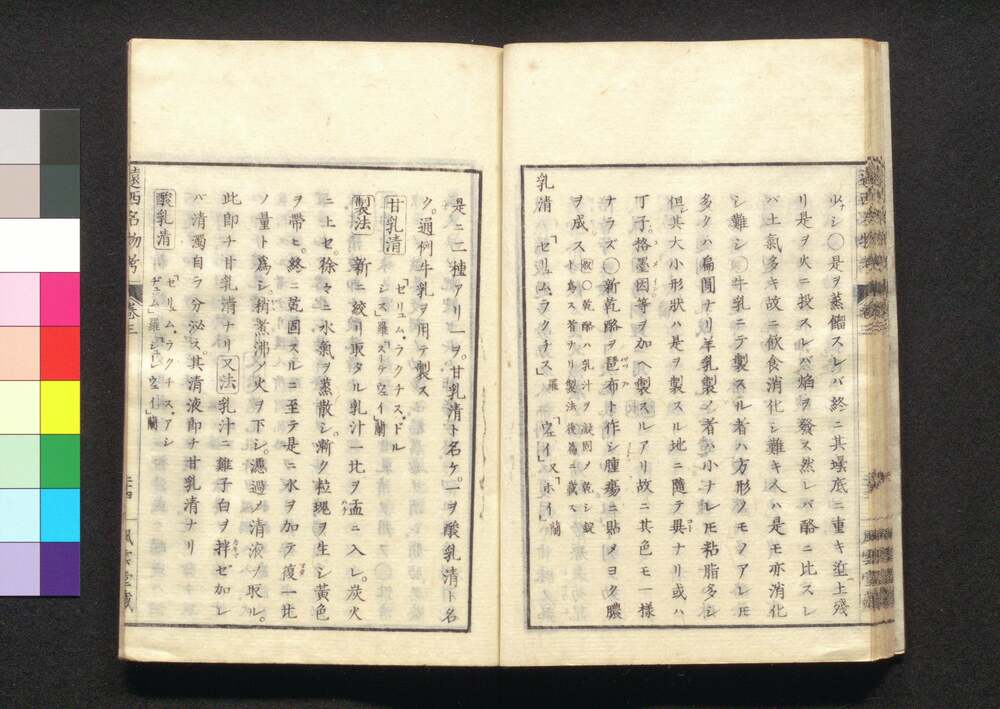 少シ○是ヲ蒸餾スレバ終ニ其壜底ニ重キ塗土殘
リ是ヲ火ニ投スレバ焰ヲ發ス然レバ酪ニ比スレ
バ土氣多キ故ニ飲食消化シ難キ人ハ是モ亦消化
シ難シ○牛乳ニテ製スル者ハ方形ノモノアレ𪜈
多クハ扁圓ナリ羊乳製ノ者ハ小ナレ𪜈粘脂多シ
但其大小形狀ハ是ヲ製スル地ニ隨テ異ナリ或ハ
丁子格墨因等ヲ加ヘ製スルアリ故ニ其色モ一樣
ナラズ○新乾酪ヲ琶布ト作シ腫瘍ニ貼メヨク膿
ヲ成ス
○乾酪ハ乳汁ヲ凝固ノ乾シ錠
ト爲ス者ナリ製法後篇ニ載ス
乳清 「セリュム、ラクチス」羅 「ウェイ」又「ホイ」蘭
是ニ二種アリ一ヲ。甘乳清ト名ケ。一ヲ酸乳清ト名
ク。通例牛乳ヲ用テ製ス
甘乳清 「セリュム、ラクチス、ドル
シス」羅「ステウェイ」蘭
製法 新ニ絞リ取タル乳汁一比ヲ盂ニ入レ。炭火
ニ上セ。徐々ニ水氣ヲ蒸散シ。漸ク粒塊ヲ生シ黃色
ヲ帶ヒ。終ニ乾固スルニ至ラ是ニ水ヲ加テ復一比
ノ量ト爲シ稍煮沸ノ火ヲ下シ。濾過ノ清液ヲ取ル。
此即チ甘乳清ナリ 又法 乳汁ニ雞子白ヲ拌ゼ加レ
バ清濁自ラ分泌ス。其清液即チ甘乳清ナリ
酸乳清 「セリュム、ラクチス、アシ
遠西名物考 卷三
風雲堂藏